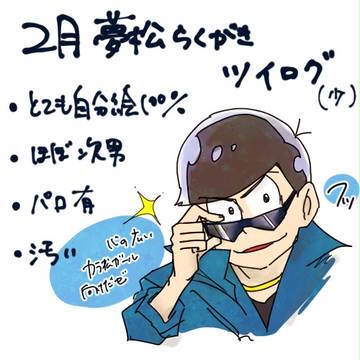 2月夢松らくがき
ツイログ
(少)
・とても自分絵100%
・ほぼ次男
・パロ有
・汚い
心の広い
カラ松ガール
向けだぜ
フッ